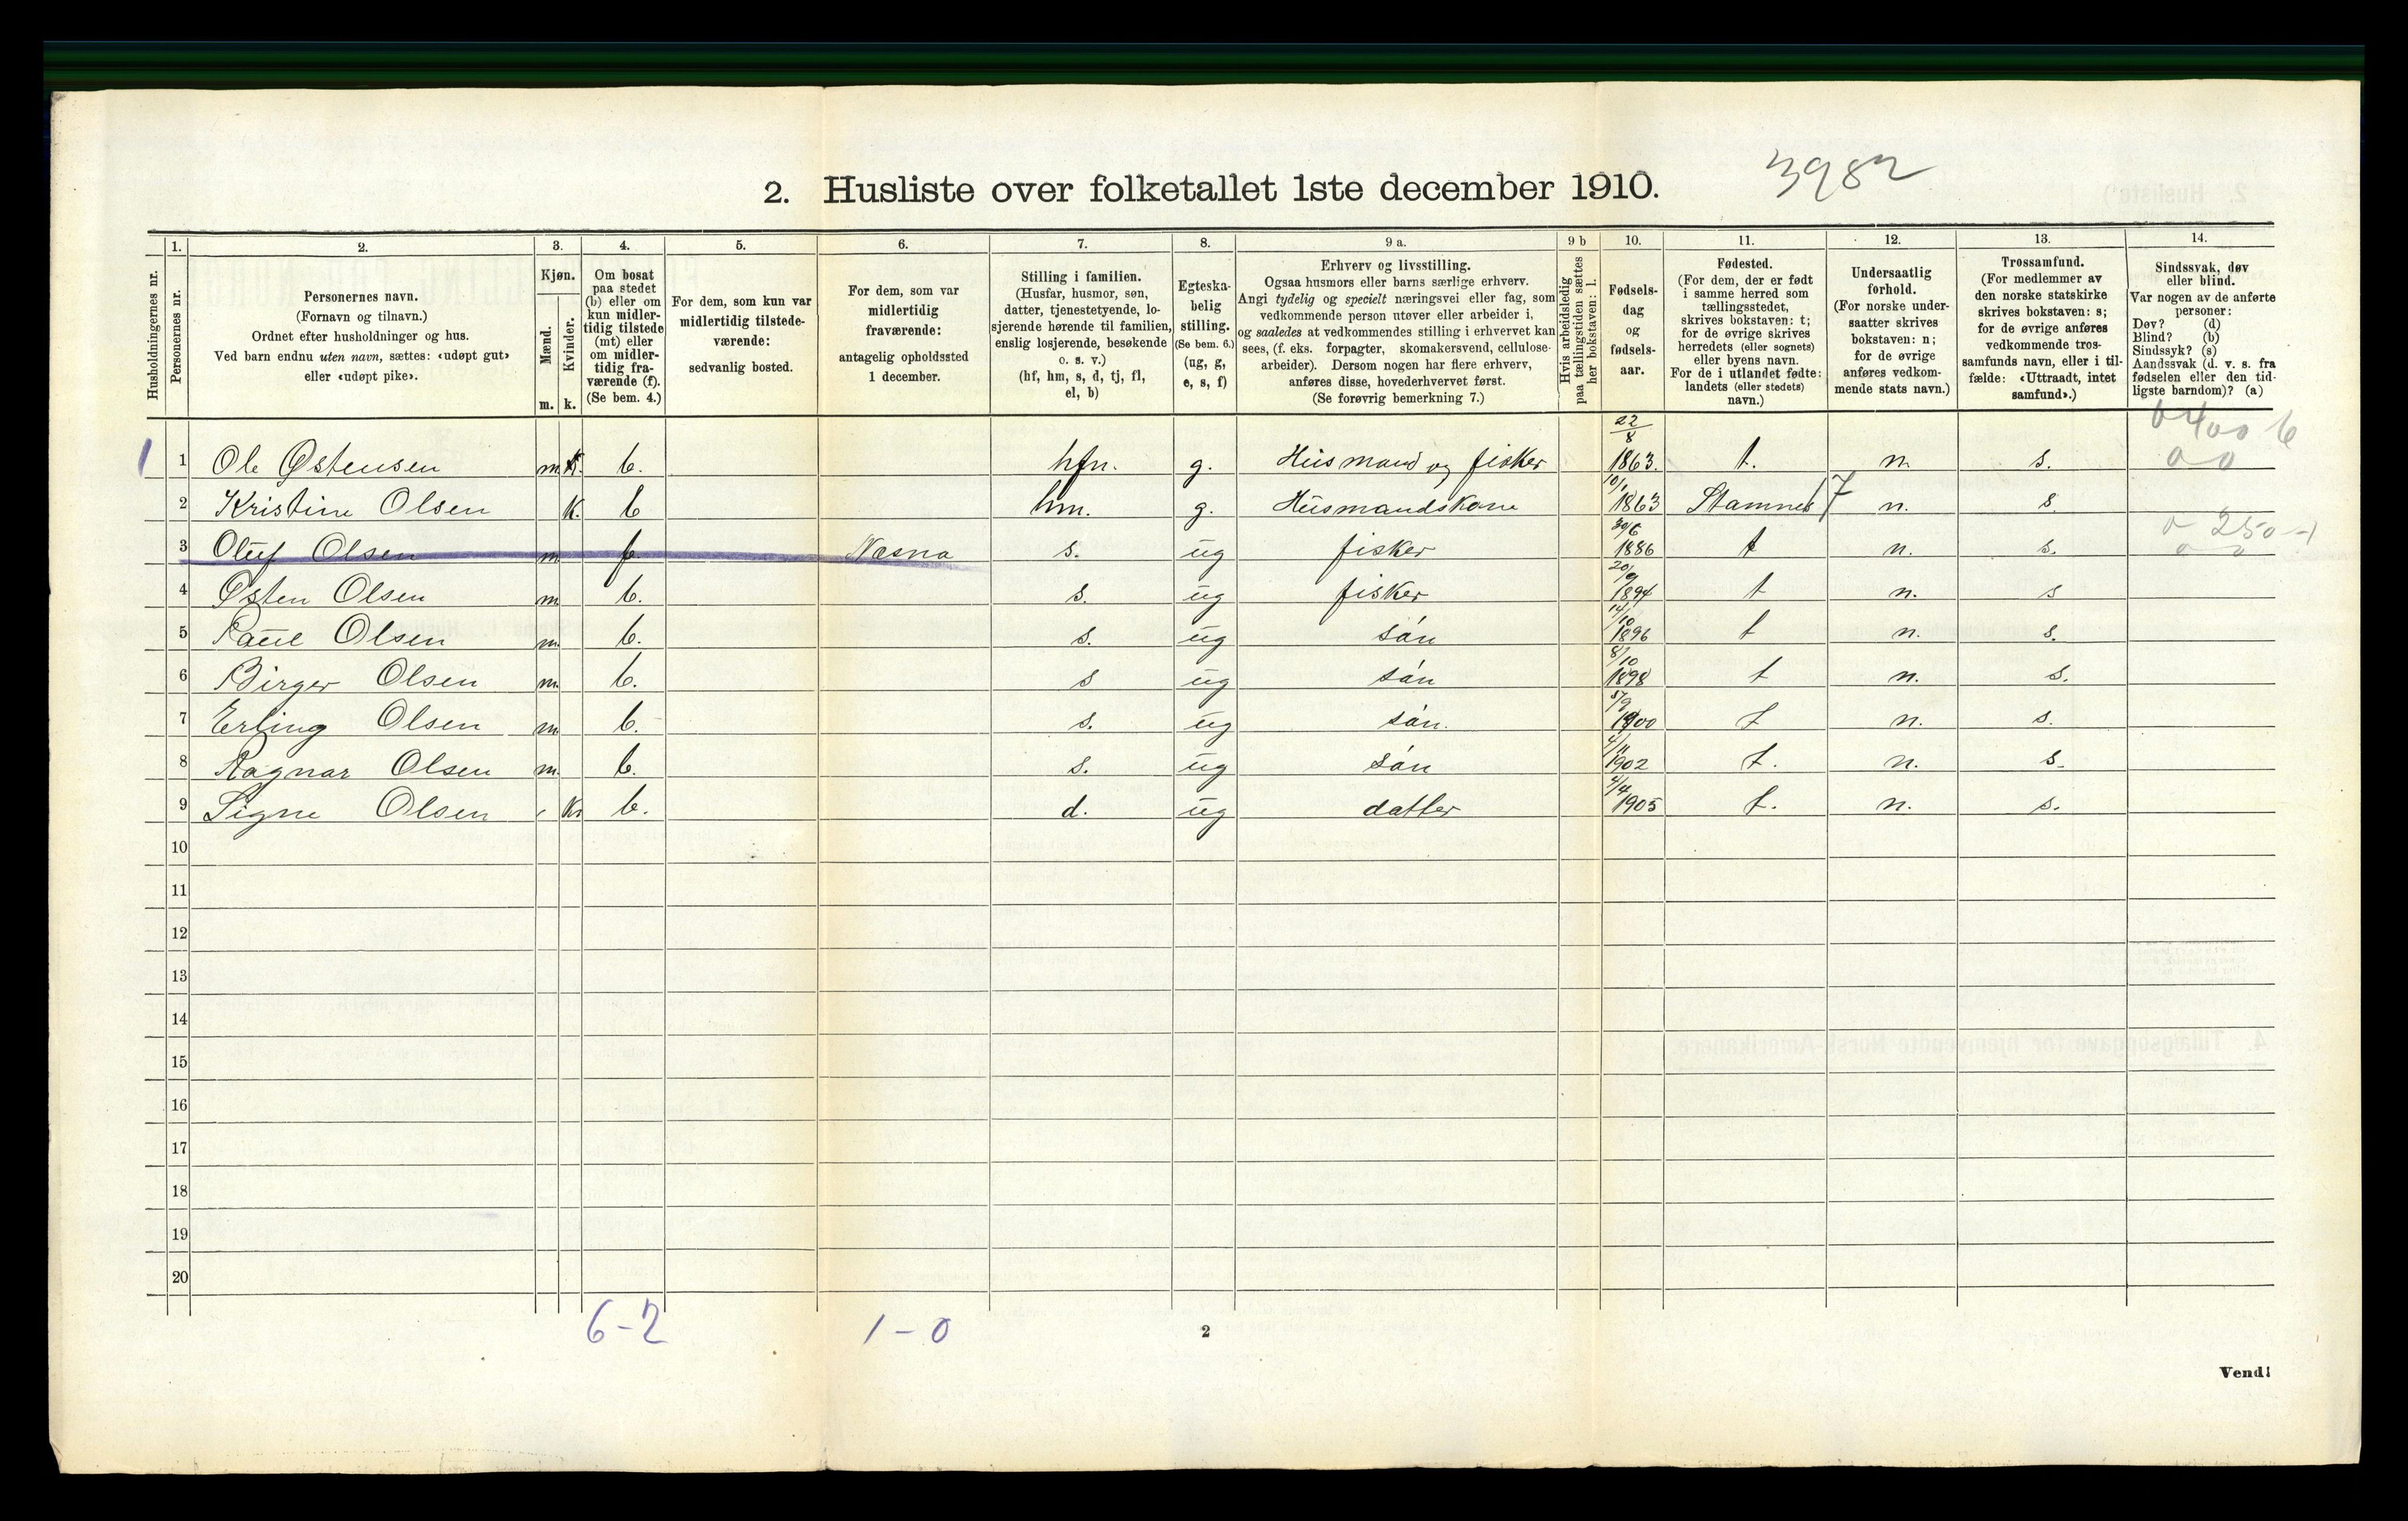 2. Husliste over folketallet 1ste december 1910. 3982
Husholdningernes nr.
1. Personernes nr.
2. Personernes navn. (Fornavn og tilnavn.) Ordnet efter husholdninger og hus. Ved barn endnu uten navn, sættes: «udøpt gut» eller «udøpt pike».
3. Kjøn. Mænd. m. Kvinder. k.
4. Om bosat paa stedet (b) eller om kun midlertidig tilstede (mt) eller om midlertidig fraværende (f). (Se bem. 4.)
5. For dem, som kun var midlertidig tilstedeværende: sedvanlig bosted.
6. For dem, som var midlertidig fraværende: antagelig opholdssted 1 december.
7. Stilling i familien. (Husfar, husmor, søn, datter, tjenestetyende, losjerende hørende til familien, enslig losjerende, besøkende o. s. v.) (hf, hm, s, d, tj, fl, el, b)
8. Egteskabelig stilling. (Se bem. 6.) (ug, g, e, s, f)
9 a. Erhverv og livsstilling. Ogsaa husmors eller barns særlige erhverv. Angi tydelig og specielt næringsvei eller fag, som vedkommende person utøver eller arbeider i, og saaledes at vedkommendes stilling i erhvervet kan sees, (f. eks. forpagter, skomakersvend, cellulosearbeider). Dersom nogen har flere erhverv, anføres disse, hovederhvervet først. (Se forøvrig bemerkning 7.)
9 b Hvis arbeidsledig paa tællingstiden sættes her bokstaven: l.
10. Fødselsdag og fødselsaar.
11. Fødested. (For dem, der er født i samme herred som tællingsstedet, skrives bokstaven: t; for de øvrige skrives herredets (eller sognets) eller byens navn. For de i utlandet fødte: landets (eller stedets) navn.)
12. Undersaatlig forhold. (For norske undersaatter skrives bokstaven: n; for de øvrige anføres vedkommende stats navn.)
13. Trossamfund. (For medlemmer av den norske statskirke skrives bokstaven: s; for de øvrige anføres vedkommende trossamfunds navn, eller i tilfælde: «Uttraadt, intet samfund».)
14. Sindssvak, døv eller blind. Var nogen av de anførte personer: Døv? (d) Blind? (b) Sindssyk? (s) Aandssvak (d. v. s. fra fødselen eller den tidligste barndom)? (a)
1 1 Ole Østensen m K. b. hfn. g. Husmand og fisker 22/8 1863. t. n. s. 400 6
2 Kristine Olsen K. b hm. g. Husmandskone 10/1 1863 Stamnes 7 n. s
3 Oluf Olsen m f Næsna s. ug fisker 30/6 1886 t n. s. 250 -1
4 Østen Olsen m b. s. ug fisker 20/9 1894 t n. s
5 Paul Olsen m. b. s. ug sön 14/10 1896 t n. s.
6 Birger Olsen m. b. s ug sön 8/10 1898 t n. s.
7 Erling Olsen m b. s. ug sön. 5/9 1900 t n. s.
8 Ragnar Olsen m. b. s. ug sön 4/11 1902 t. n. s.
9 Signe Olsen K. b. d. ug datter 4/4 1905 t. n. s.
10
11
12
13
14
15
16
17
18
19
20
6-2 1-0 2
Vend!